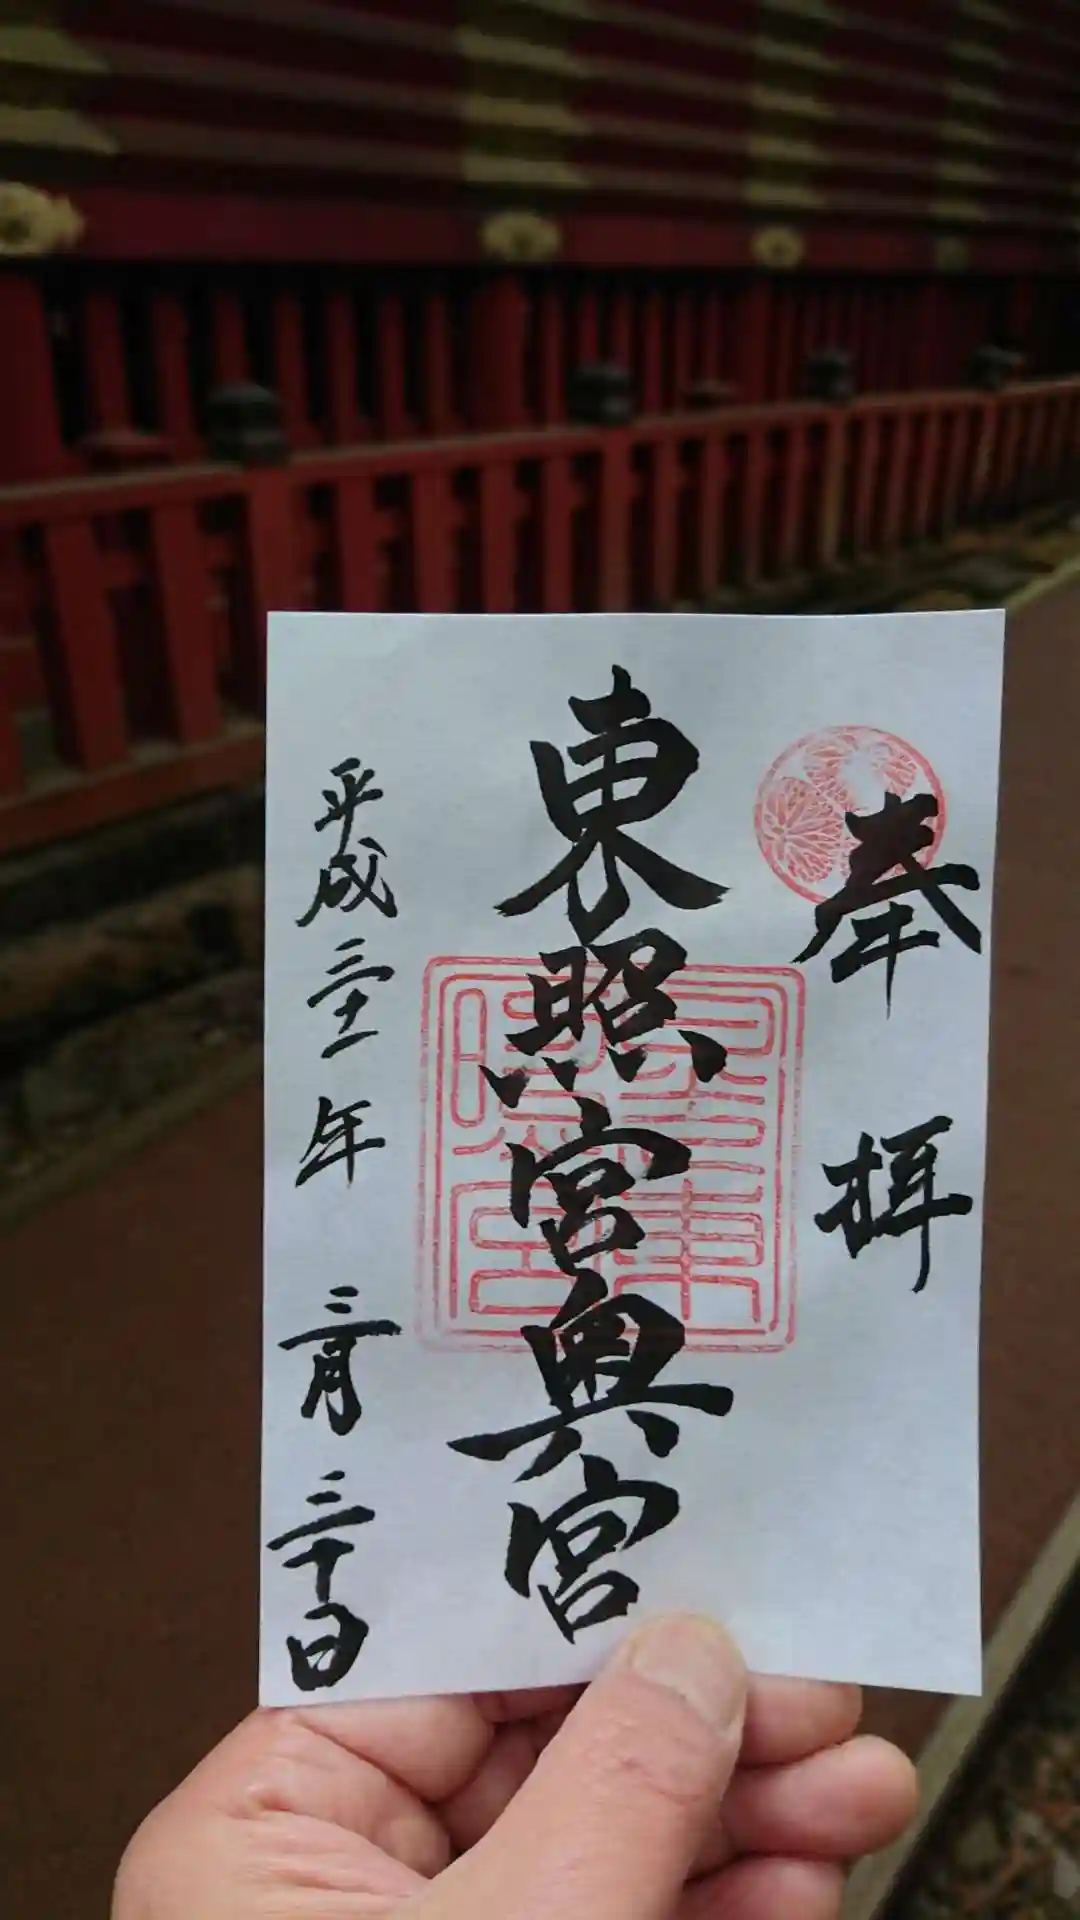 奉拝
東照宮奥宮
平成三十一年三月三十日